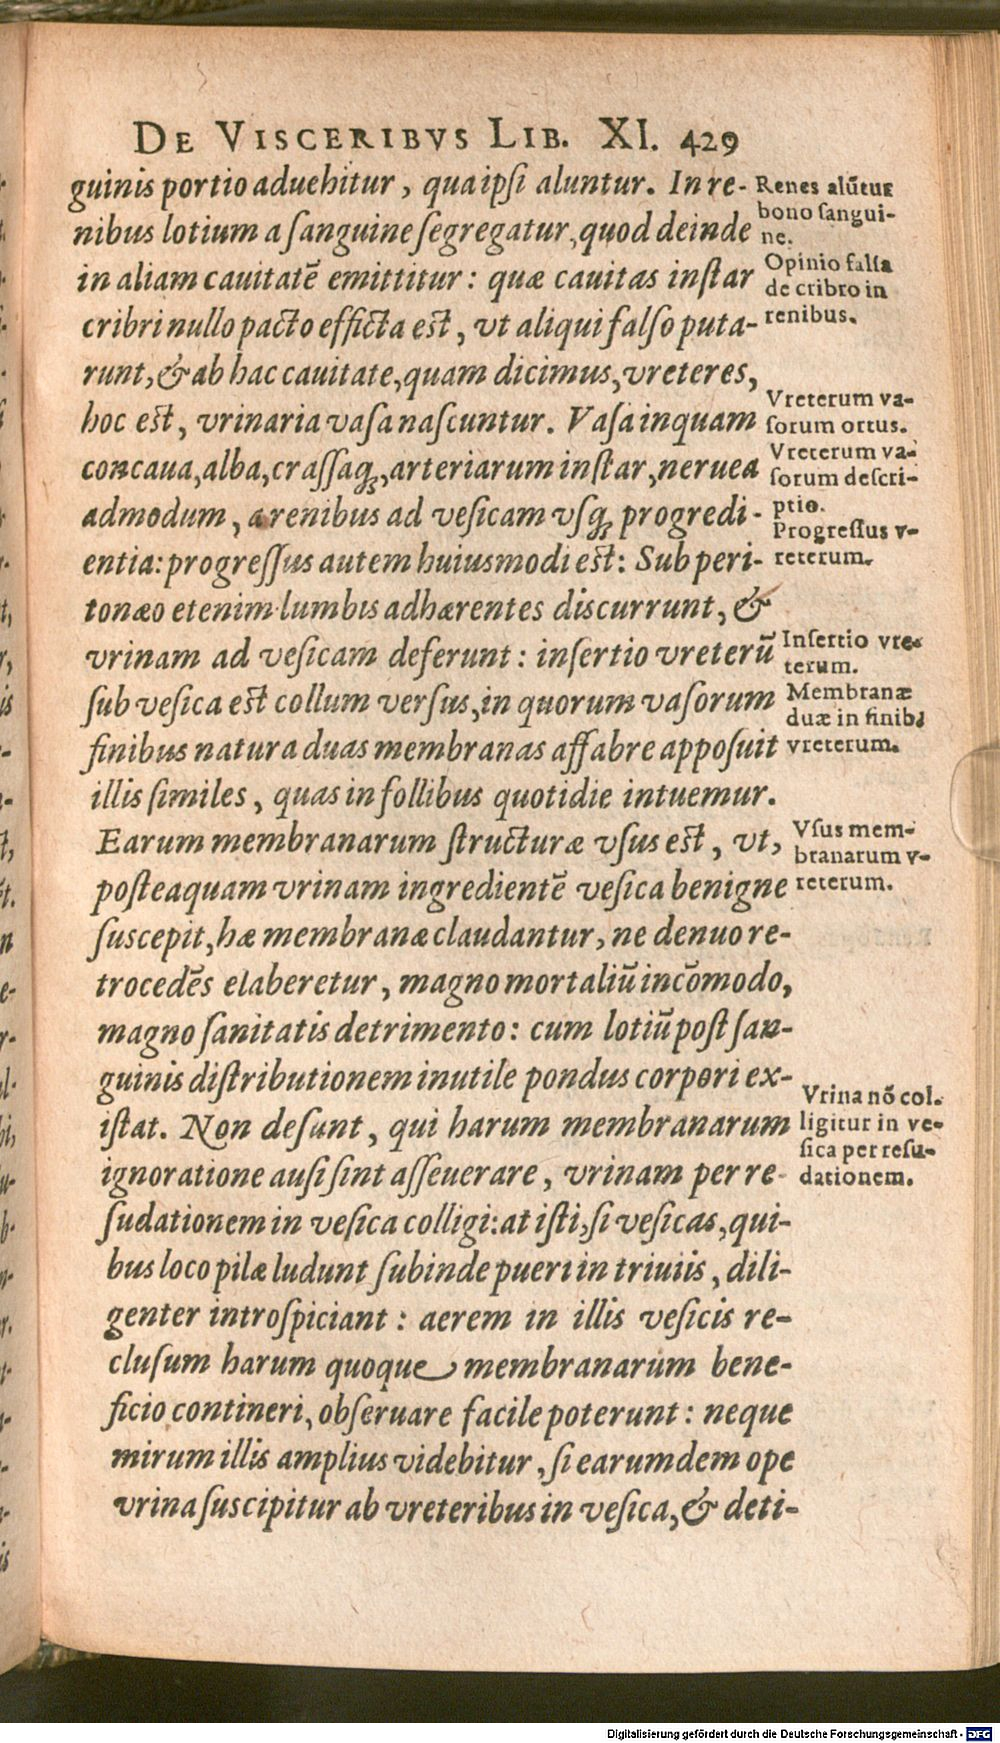 DE VISCERIBVS LIB. XI. 429
guinis portio aduehitur, qua ipſi aluntur. In re-
nibus lotium a ſanguine ſegregatur, quod deinde
in aliam cauitatē emittitur: quæ cauitas inſtar
cribri nullo pacto efficta est, vt aliqui falſo puta-
runt, & ab hac cauitate, quam dicimus, vreteres,
hoc est, vrinaria vaſa naſcuntur. Vaſa inquam
concaua, alba, craſſaq́;, arteriarum inſtar, neruea
admodum, a renibus ad veſicam vſq́; progredi-
entia: progreſſus autem huiusmodi est: Sub peri-
tonæo etenim lumbis adhærentes discurrunt, &
vrinam ad veſicam deferunt: inſertio vreterū
ſub veſica est collum verſus, in quorum vaſorum
finibus natura duas membranas affabre appoſuit
illis ſimiles, quas in follibus quotidie intuemur.
Earum membranarum ſtructuræ vſus est, vt,
poſteaquam vrinam ingredientē veſica benigne
suscepit, hæ membranæ claudantur, ne denuo re-
trocedēs elaberetur, magno mortaliū incōmodo,
magno ſanitatis detrimento: cum lotiū poſt ſan-
guinis diſtributionem inutile pondus corpori ex-
iſtat. Non deſunt, qui harum membranarum
ignoratione auſi ſint aſſeuerare, vrinam per re-
ſudationem in veſica colligi: at iſti, ſi veſicas, qui-
bus loco pilæ ludunt ſubinde pueri in triuiis, dili-
genter introſpiciant: aerem in illis veſicis re-
cluſum harum quoque membranarum bene-
ficio contineri, obſeruare facile poterunt: neque
mirum illis amplius videbitur, ſi earumdem ope
vrina ſuscipitur ab vreteribus in veſica, & deti-
Renes alūtur
bono ſangui-
ne.
Opinio falſa
de cribro in
renibus.
Vreterum va-
ſorum ortus.
Vreterum va-
ſorum deſcri-
ptio.
Progreſſus v-
reterum.
Inſertio vre-
terum.
Membranæ
duæ in finib.
vreterum.
Vſus mem-
branarum v-
reterum.
Vrina nō col-
ligitur in ve-
ſica per reſu-
dationem.
Digitalisierung gefördert durch die Deutsche Forschungsgemeinschaft - DFG